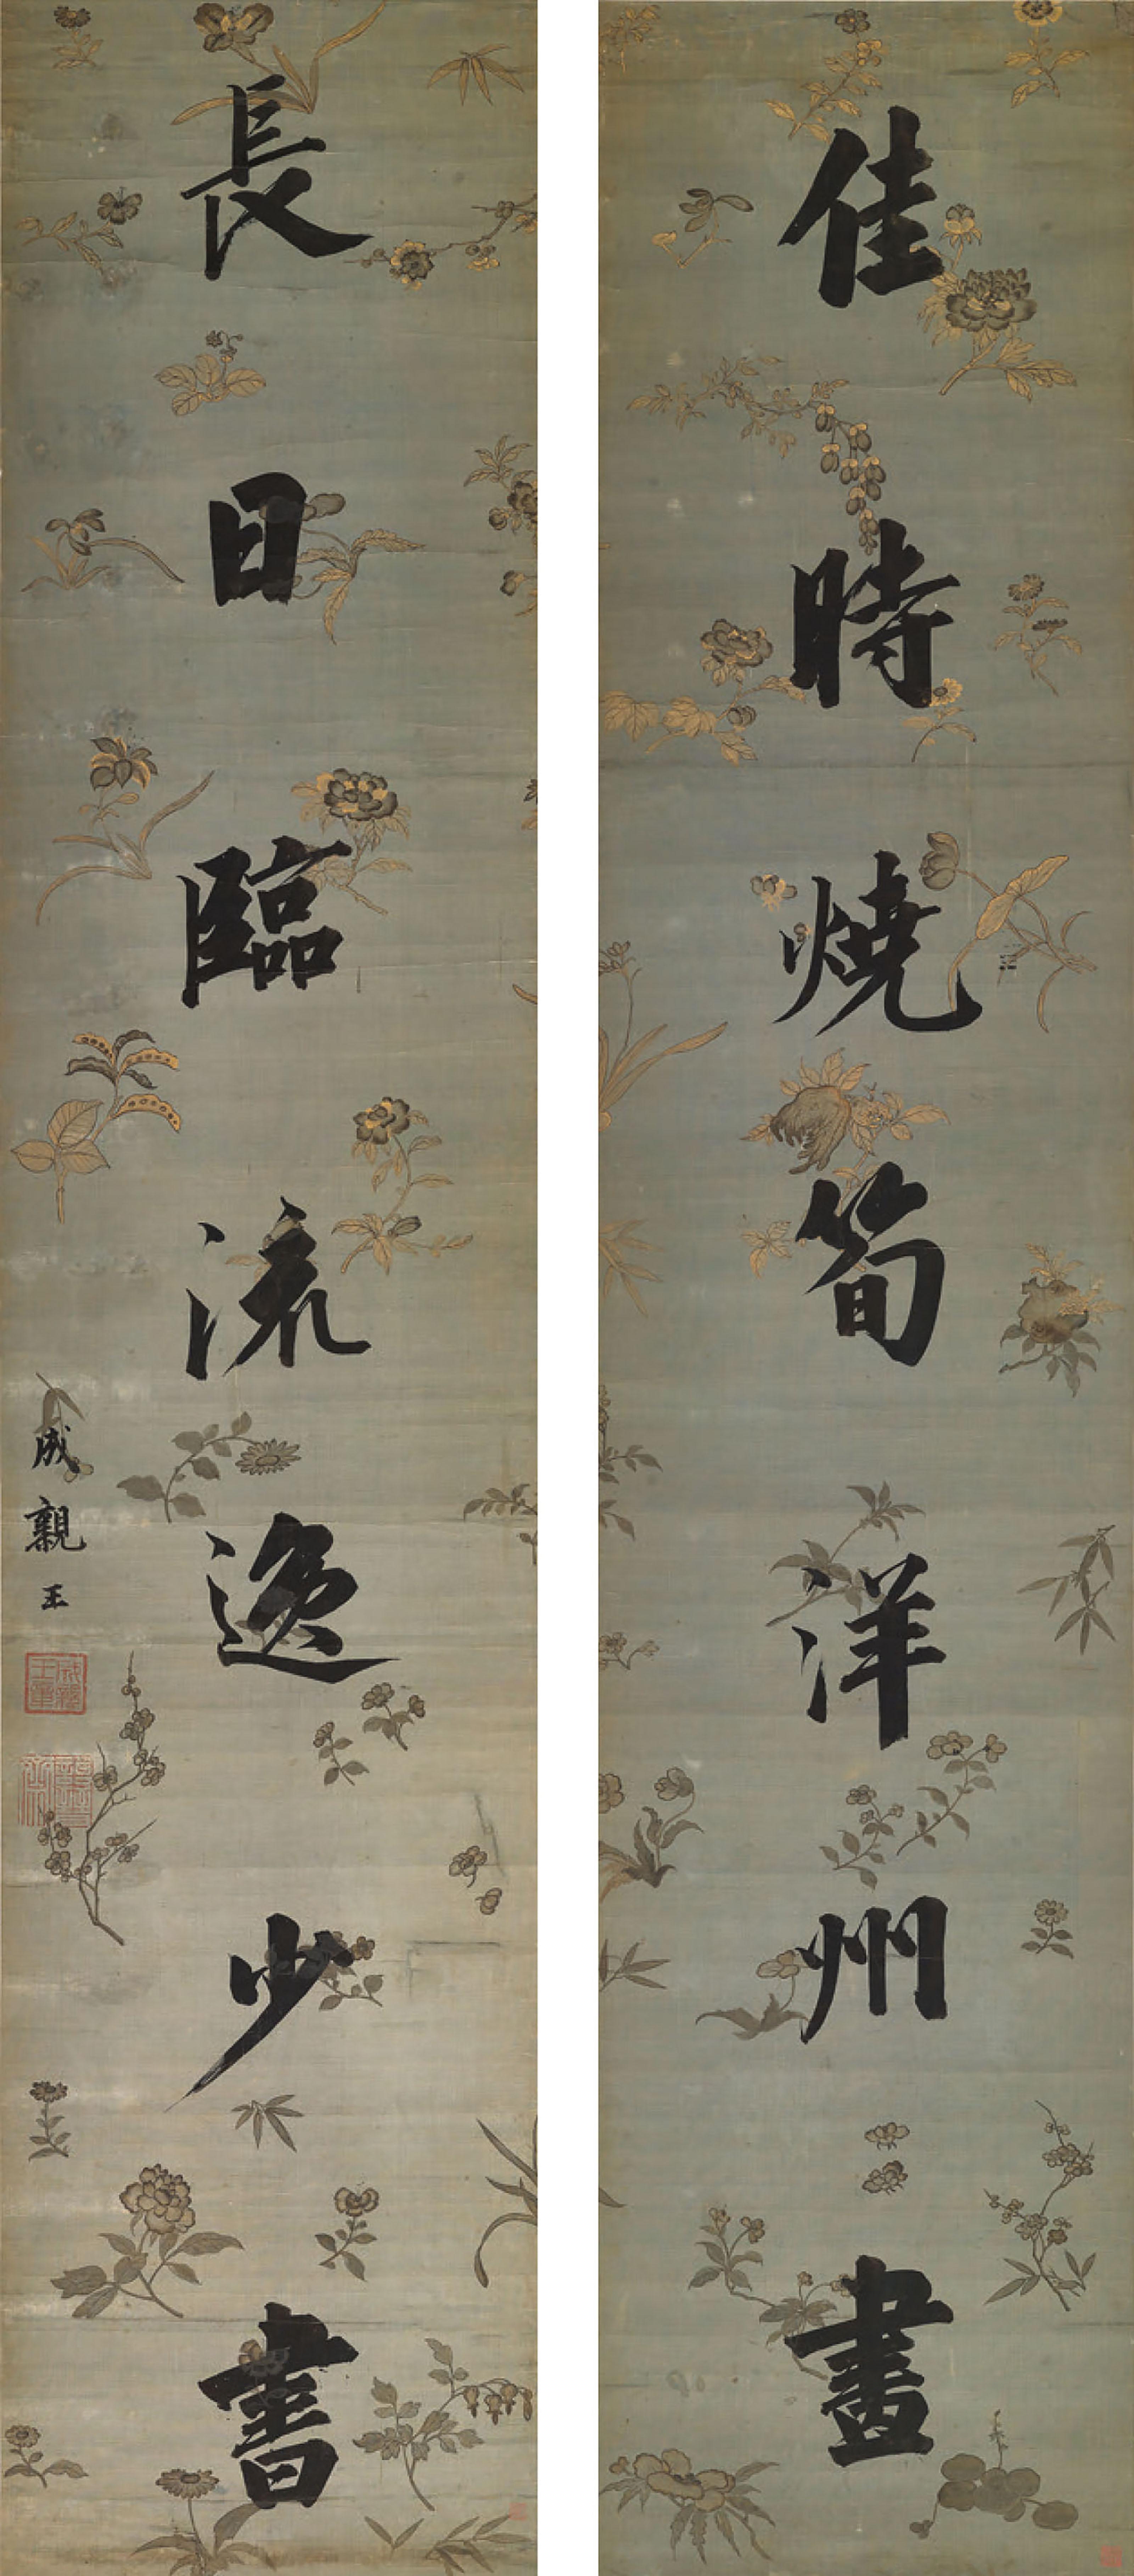 佳時燒筍洋州畫
長日臨流逸少書
成親王